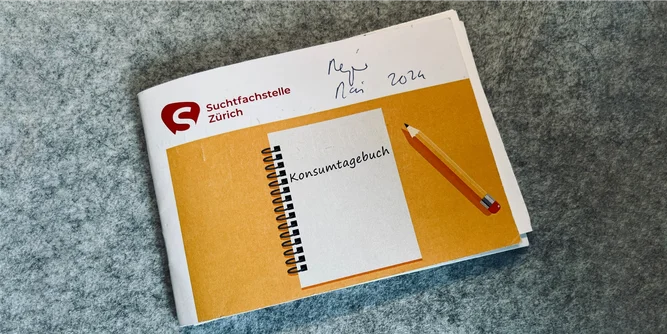 Mai 2024
Suchtfachstelle
Zürich
Konsumtagebuch